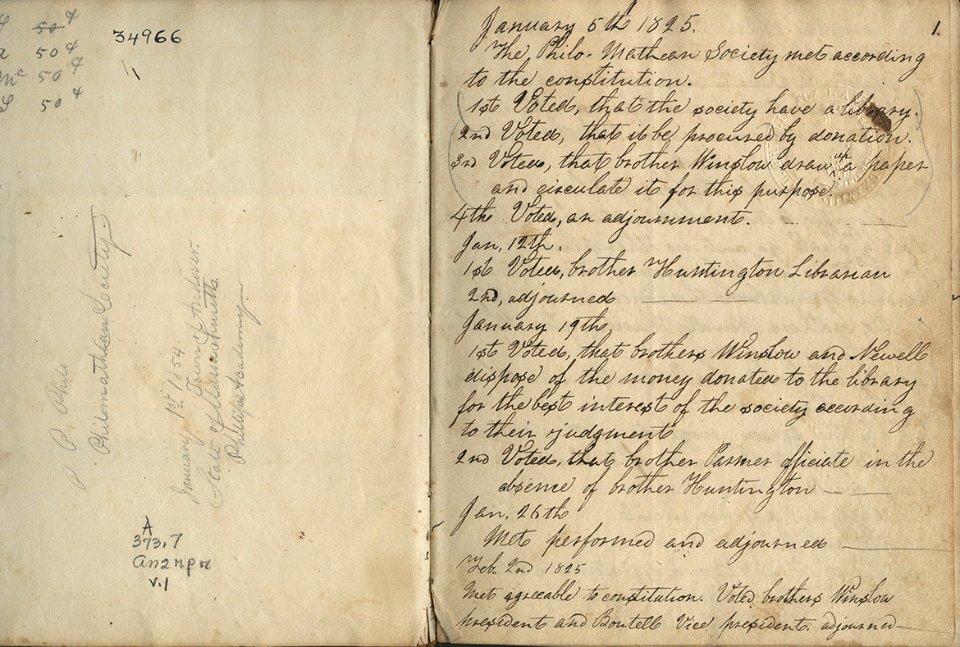 50¢
50¢
Mc 50¢
50¢
34966
P P Phils
Philomathean Society.
January 1st 1854.
Town of Andover.
State of Massachusetts
Phillips Academy
A
373.7
v.1
1.
January 5th 1825.
The Philo-Mathean Society met according
to the constitution.
1st Voted, that the society have a library.
2nd Voted, that it be procured by donation.
3rd Voted, that brother Winslow draw up a paper
and circulate it for this purpose.
4th Voted, an adjournment.
Jan. 12th.
1st Voted, brother Huntington Librarian
2nd, adjourned
January 19th.
1st Voted, that brothers Winslow and Newell
dispose of the money donated to the library
for the best interest of the society according
to their judgment
2nd Voted, that brother Parmer officiate in the
absence of brother Huntington
Jan. 26th
Met performed and adjourned
Feb. 2nd 1825
Met agreeable to constitution. Voted brothers Winslow
president and Boutell Vice president. adjourned